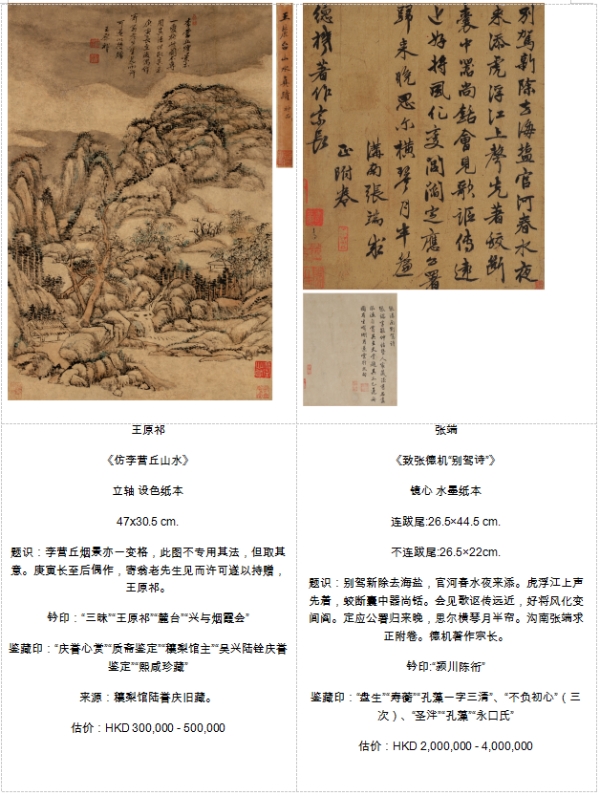 王麓台山水真蹟
王原祁
《仿李营丘山水》
立轴 设色纸本
47x30.5 cm.
题识：李营丘烟景亦一变格，此图不专用其法，但取其
意。庚寅长至后偶作，寄翁老先生见而许可遂以持赠，
王原祁。
钤印：“三昧”“王原祁”“麓台”“兴与烟霞会”
鉴藏印：“庆誉心赏”“质斋鉴定”“穰梨馆主”“吴兴陆铨庆誉
鉴定”“熙咸珍藏”
来源：穰梨馆陆誉庆旧藏。
估价：HKD 300,000 - 500,000
別駕新除去海鹽官河春水夜
來添虎浮江上聲先著蛟斷
囊中器尚銛會見歌謳傳遠
近好將風化變閭閻定應公署
歸來晚思尔橫琴月半簷
溝南張端求
正附卷
德機著作宗長
张端
《致张德机“别驾诗”》
镜心 水墨纸本
连跋尾:26.5×44.5 cm.
不连跋尾:26.5×22cm.
题识：别驾新除去海盐，官河春水夜来添。虎浮江上声
先着，蛟断囊中器尚铦。会见歌讴传远近，好将风化变
闾阎。定应公署归来晚，思尔横琴月半帘。沟南张端求
正附卷。德机著作宗长。
钤印：“颍川陈衎”
鉴藏印：“盘生”“寿蘅”“孔藻一字三清”、“不负初心”（三
次）、“圣泮”“孔藻”“永口氏”
估价：HKD 2,000,000 - 4,000,000